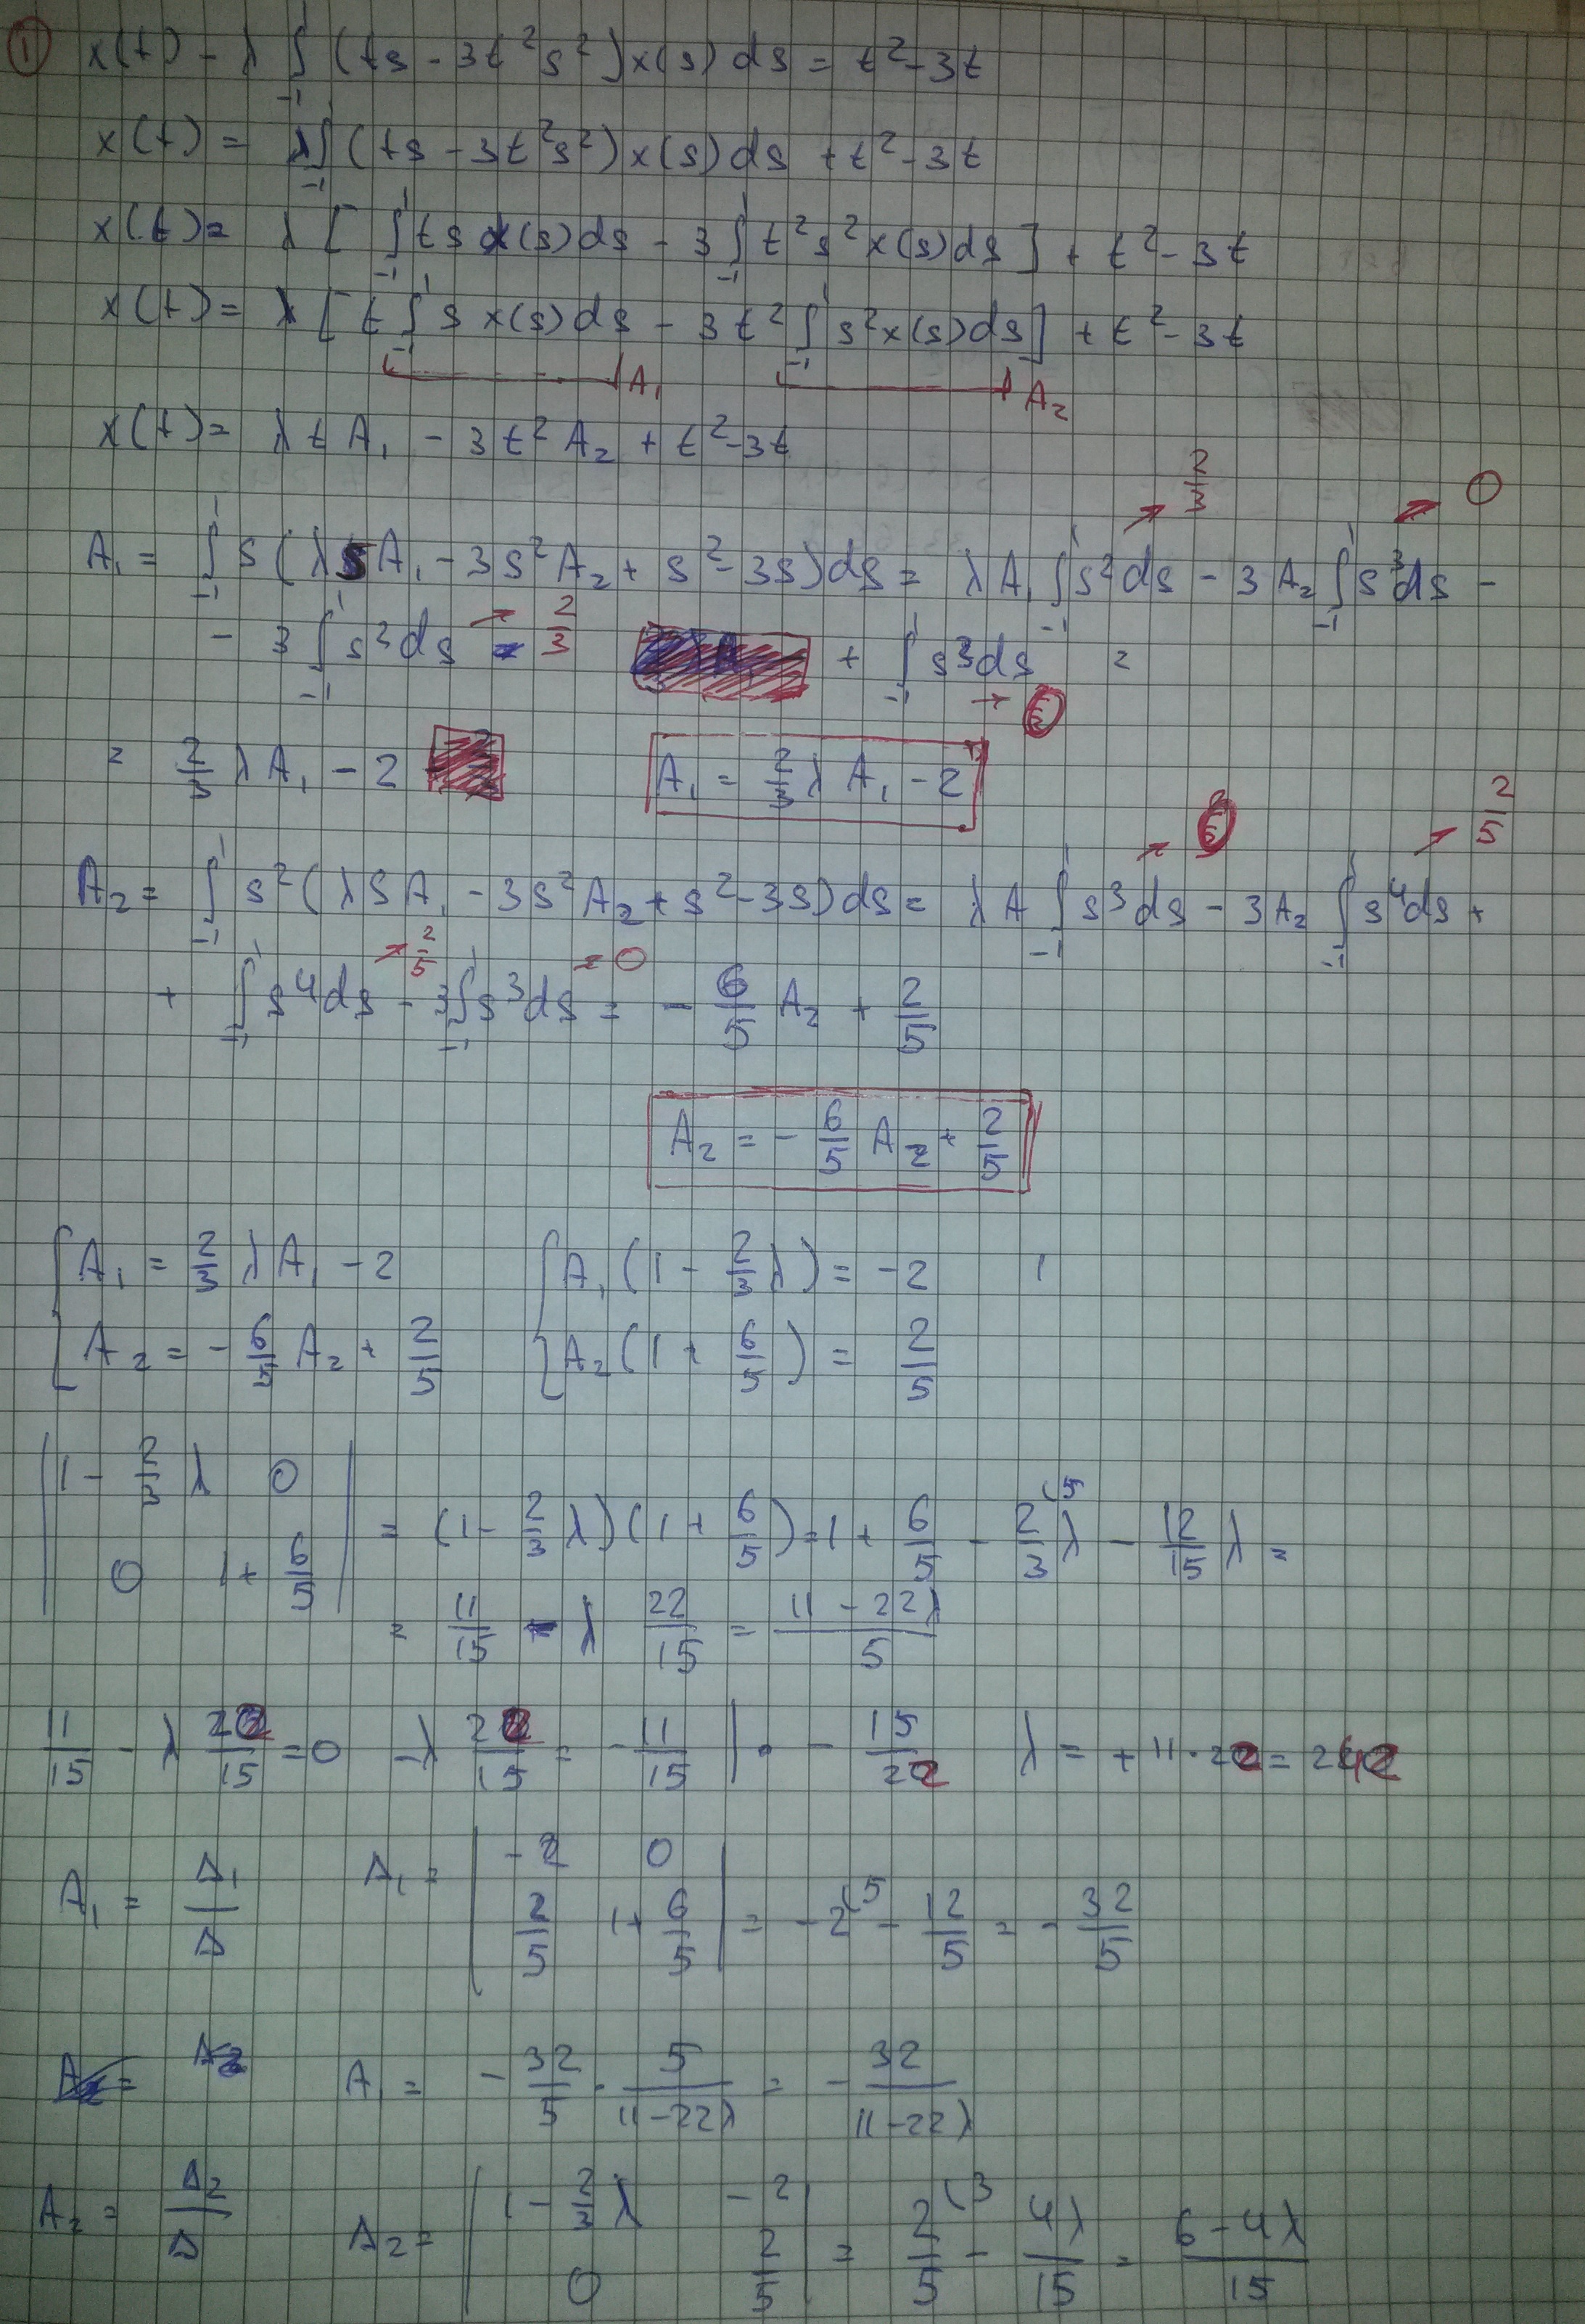 ① x(t) - λ ∫_{-1}^{1} (ts - 3t²s²) x(s) ds = t² - 3t
x(t) = λ ∫_{-1}^{1} (ts - 3t²s²) x(s) ds + t² - 3t
x(t) = λ [ ∫_{-1}^{1} ts x(s) ds - 3 ∫_{-1}^{1} t² s² x(s) ds ] + t² - 3t
x(t) = λ [ t ∫_{-1}^{1} s x(s) ds - 3t² ∫_{-1}^{1} s² x(s) ds ] + t² - 3t
A₁ A₂
x(t) = λ t A₁ - 3t² A₂ + t² - 3t
2/3 0
A₁ = ∫_{-1}^{1} s (λ s A₁ - 3s² A₂ + s² - 3s) ds = λ A₁ ∫_{-1}^{1} s² ds - 3 A₂ ∫_{-1}^{1} s³ ds -
- 3 ∫_{-1}^{1} s² ds → 2/3 + ∫_{-1}^{1} s³ ds =
→ 0
= 2/3 λ A₁ - 2 A₁ = 2/3 λ A₁ - 2
→ 0 → 2/5
A₂ = ∫_{-1}^{1} s² (λ s A₁ - 3s² A₂ + s² - 3s) ds = λ A ∫_{-1}^{1} s³ ds - 3 A₂ ∫_{-1}^{1} s⁴ ds +
→ 2/5 = 0
+ ∫_{-1}^{1} s⁴ ds - 3 ∫_{-1}^{1} s³ ds = - 6/5 A₂ + 2/5
A₂ = - 6/5 A₂ + 2/5
{ A₁ = 2/3 λ A₁ - 2 { A₁ (1 - 2/3 λ) = -2
A₂ = - 6/5 A₂ + 2/5 A₂ (1 + 6/5) = 2/5
| 1 - 2/3 λ 0 |
| 0 1 + 6/5 | = (1 - 2/3 λ)(1 + 6/5) = 1 + 6/5 - 2/3 λ (5 - 12/15 λ =
= 11/15 - λ 22/15 = (11 - 22λ)/5
11/15 - λ 22/15 = 0 -λ 22/15 = - 11/15 | · - 15/22 λ = + 11 · 22 = 242
A₁ = Δ₁/Δ Δ₁ = | -2 0 |
| 2/5 1 + 6/5 | = -2 (5 - 12/5 = - 32/5
A₁ = - 32/5 · 5/(11 - 22λ) = - 32/(11 - 22λ)
A₂ = Δ₂/Δ Δ₂ = | 1 - 2/3 λ -2 |
| 0 2/5 | = 2/5 (3 - 4λ/15 = (6 - 4λ)/15